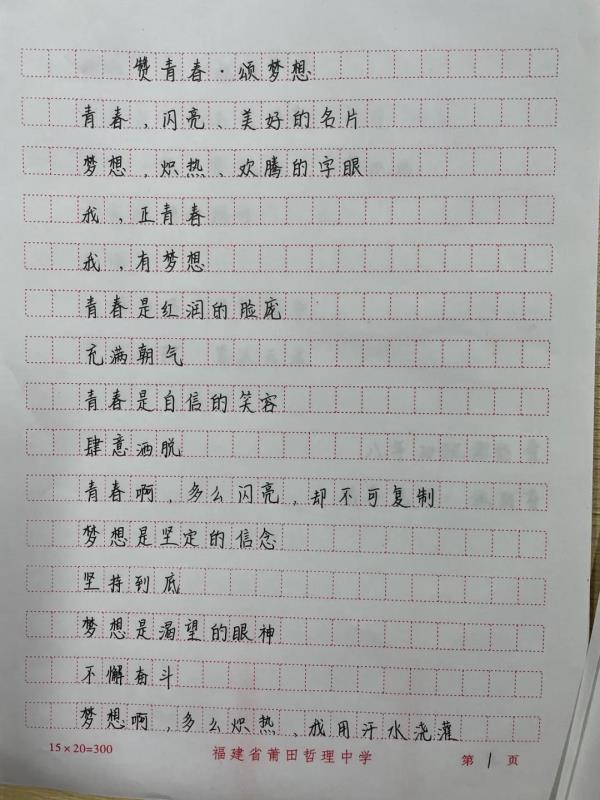 赞青春·颂梦想
青春,闪亮、美好的名片
梦想,炽热、欢腾的字眼
我,正青春
我,有梦想
青春是红润的脸庞
充满朝气
青春是自信的笑容
肆意洒脱
青春啊,多么闪亮,却不可复制
梦想是坚定的信念
坚持到底
梦想是渴望的眼神
不懈奋斗
梦想啊,多么炽热,我用汗水浇灌
15×20=300 福建省莆田哲理中学 第1页